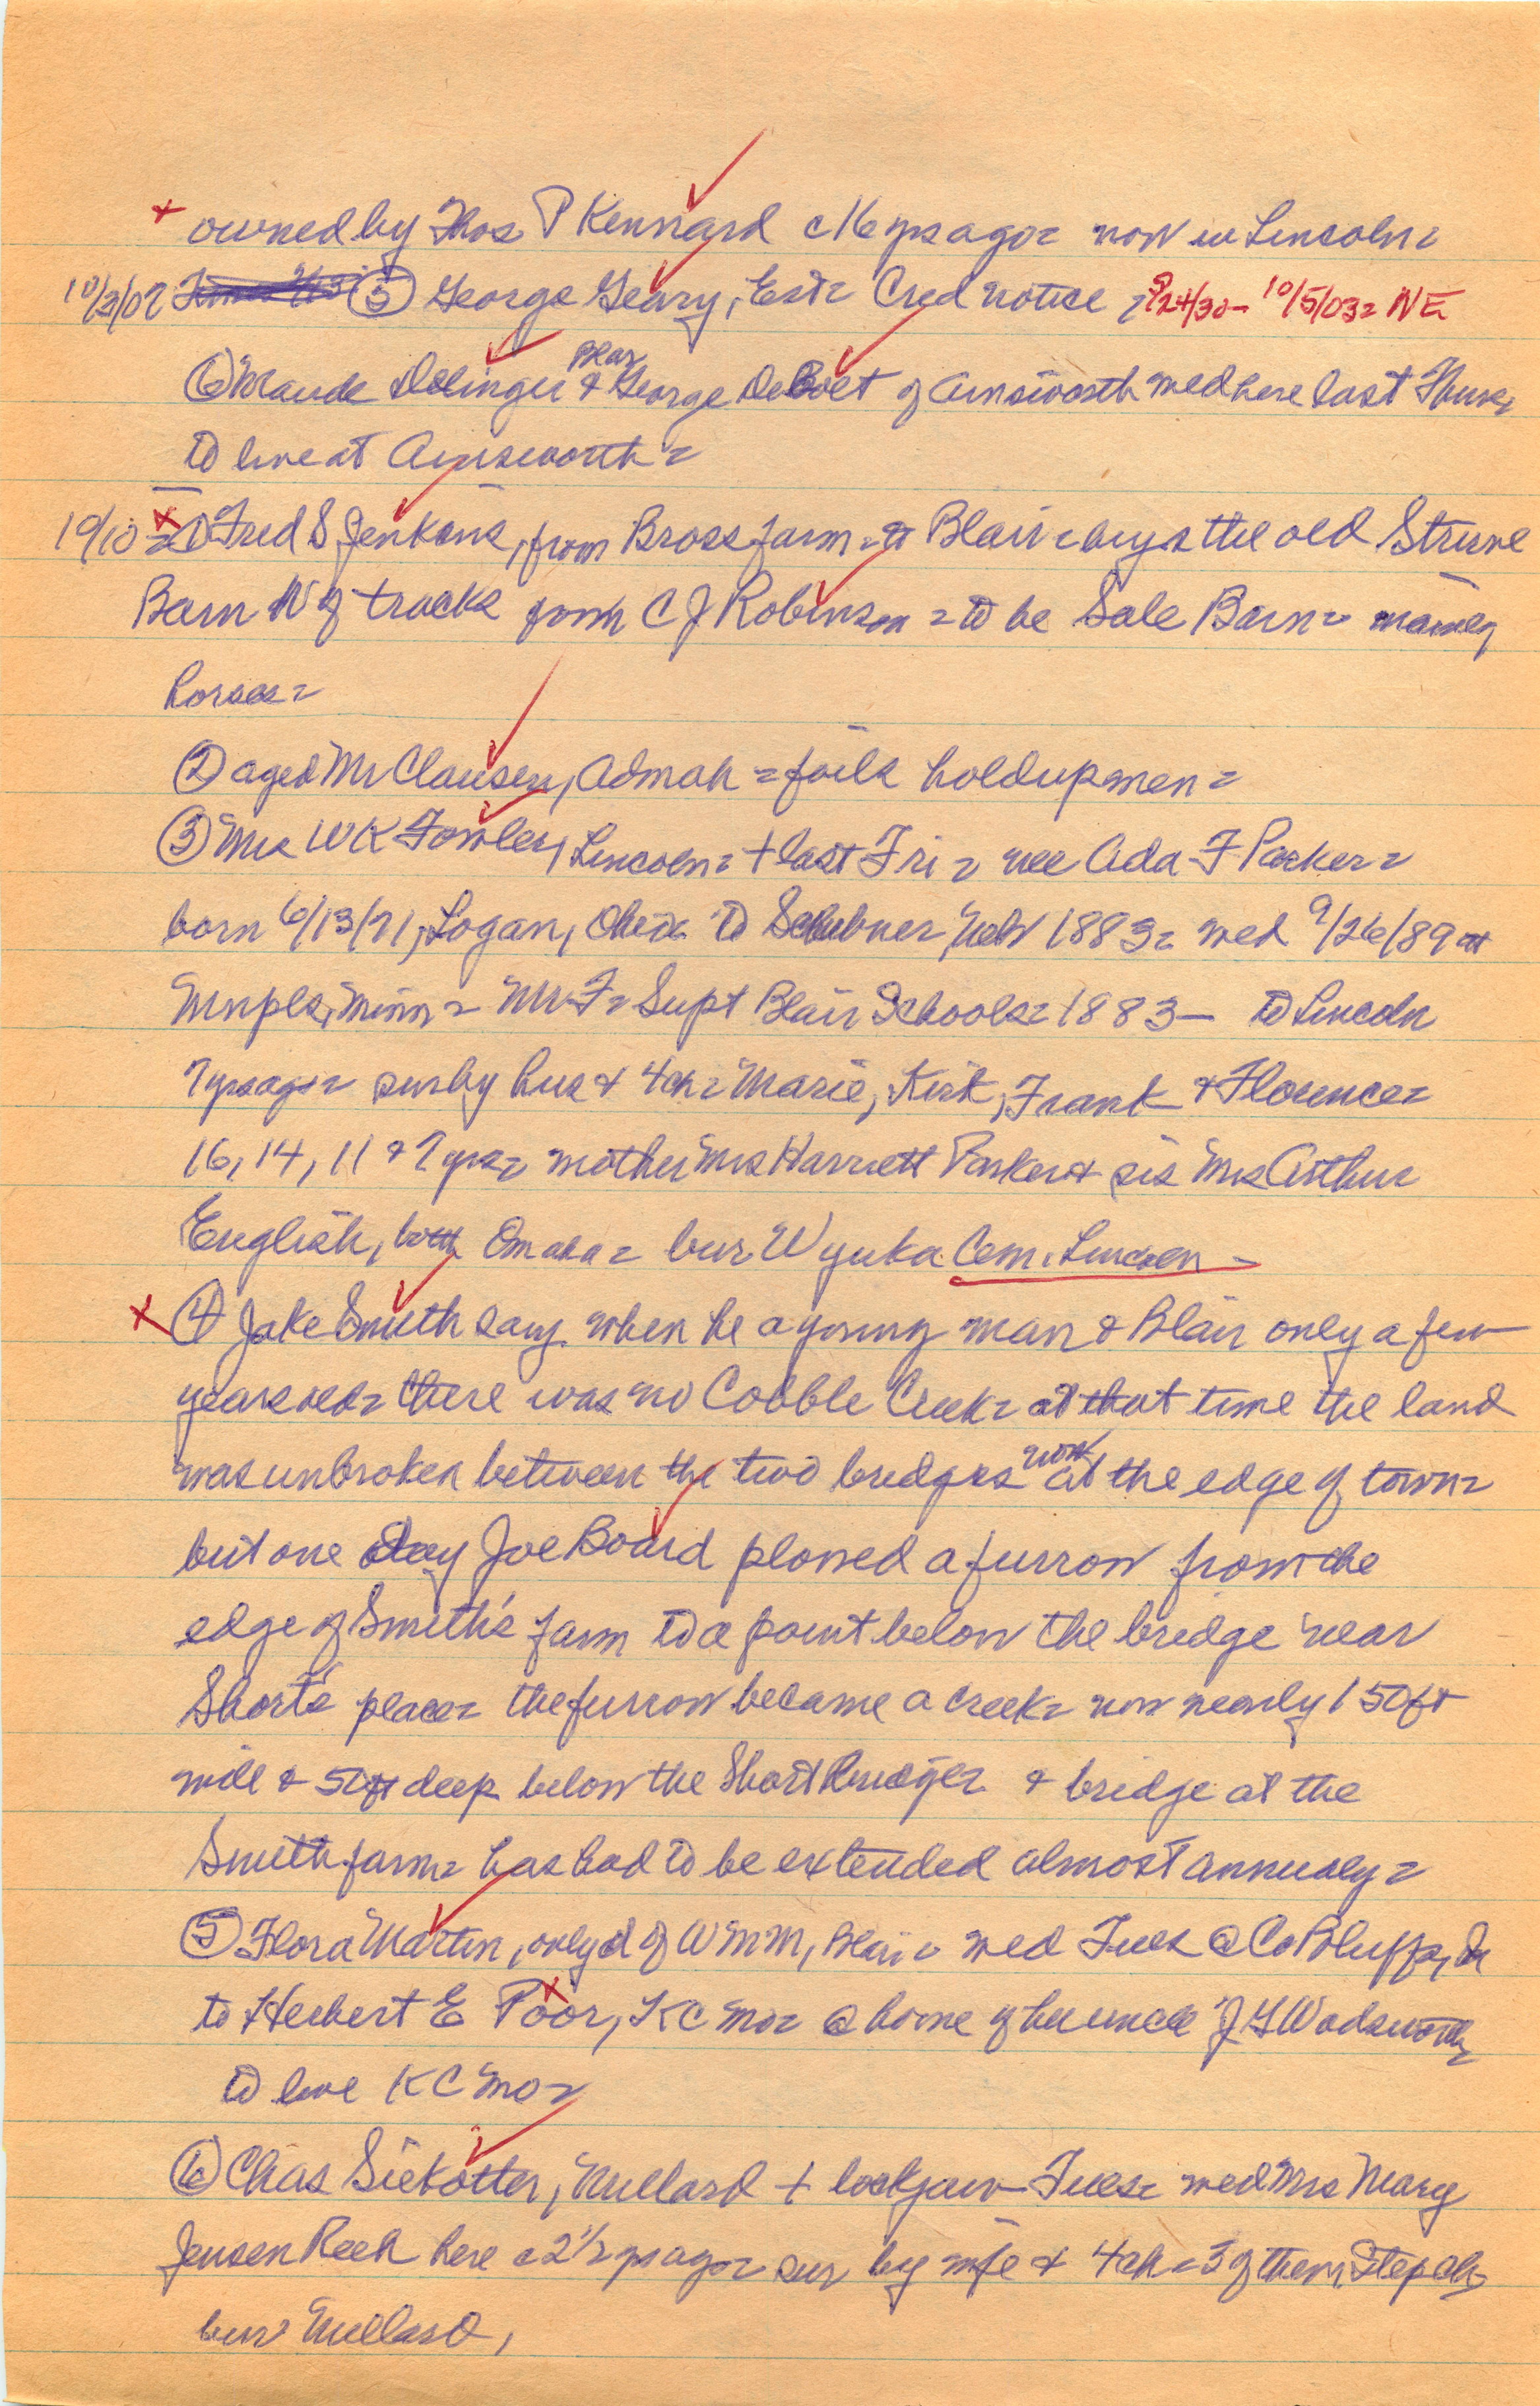 x owned by Thos P Kennard c16 yrs ago = now in Lincoln =
10/3/07 (5) George Geary, Est = Cred notice = 9/24/30 - 10/5/03 = NE
(6) Maude Dolinger Blair & George DeBolt of Ainsworth wed here last Thurs
to live at Ainsworth =
10/10 = x (1) Fred S Jenkins, from Bross farm = to Blair = buys the old Struve
Barn W of tracks from C J Robinson = to be Sale Barn = mainly
horses =
(2) aged Mr Clausen, Admah = foils holdup men =
(3) Mrs W K Fowler, Lincoln = + last Fri = nee Ada F Parker =
born 6/13/71, Logan, Ohio = to Scribner, Neb 1883 = wed 9/26/89 at
Mnpls, Minn = Mr F = Supt Blair Schools = 1883 - to Lincoln
7 yrs ago = sur by hus & 4 ch = Marie, Kirk, Frank & Florence =
16, 14, 11 & 7 yrs = mother Mrs Harriett Parker & sis Mrs Arthur
English, both Omaha = bur Wyuka Cem. Lincoln -
x (4) Jake Smith says when he a young man & Blair only a few
years old = there was no Cobble Creek = at that time the land
was unbroken between the two bridges now at the edge of town =
but one day Joe Board plowed a furrow from the
edge of Smith's farm to a point below the bridge near
Short's place = the furrow became a creek = now nearly 150 ft
wide & 50 ft deep below the Short bridge = & bridge at the
Smith farm = has had to be extended almost annualy =
(5) Flora Martin, only d of W M M, Blair = wed Tues @ Co Bluffs, Ia
to Herbert E Poor, KC Mo = @ home of her uncle J G Wadsworth =
to live K C Mo =
(6) Chas Siekotter, Millard + lockjaw Tues = wed Mrs Mary
Jensen Reeh here c 2 1/2 yrs ago = sur by wife & 4 ch = 3 of them Step ch =
bur Millard,